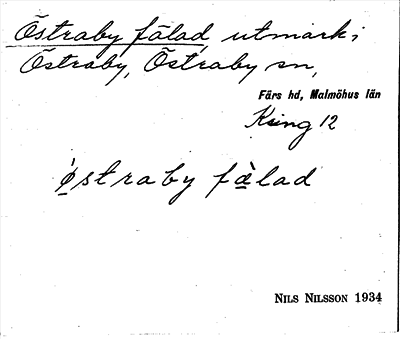 Östraby fälad, utmark;
Östraby, Östraby sn,
Färs hd, Malmöhus län
Kring 12
östraby fälad
NILS NILSSON 1934